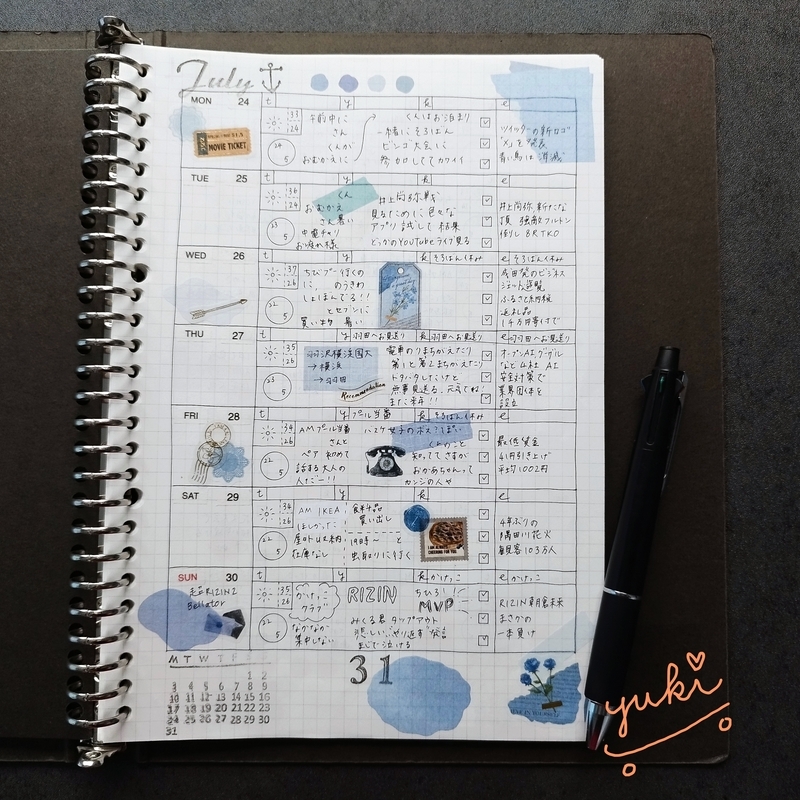 July
MON 24 t y k e
33
24
午前中に
さん
くんが
おむかえに
くんはお泊まり
一緒にそろばん
ビンゴ大会に
参加しててカワイイ
ツイッターの新ロゴ
"X"を発表
青い鳥は消滅
MOVIE TICKET
TUE 25 t y k e
36
24
くん
おむかえ
さん暑い
中電チャリ
お疲れ様
井上尚弥戦
見るために色々な
アプリ試して結果
どっかのYouTubeライブ見る
井上尚弥新たな
頂 強敵フルトン
倒し 8R TKO
WED 26 t y k そろばん休み e そろばん休み
37
26
ちびプー行くの
に、のうきわ
しょぼんでる!!
とセブンに
買います 暑い
成田発のビジネス
ジェット遊覧
ふるさと納税
返礼品
1千万寄付で
THU 27 t y k 羽田へお見送り e 羽田へお見送り
35
25
羽沢横浜国大
→横浜
→羽田
Recommendation
電車のりまちがえたり
第1と第2まちがえたり
トタバタしたけど
無事見送る。元気でね!
また来年!!
オープンAI、グーグル
など4社 AI
安全対策で
業界団体を
設立
FRI 28 t y プール当番 k そろばん休み e
34
26
AMプール当番
さんと
ペア 初めて
話する大人の
人だー!!
くんのこと
知っててさすが
おかあちゃんって
カンジの人や
最低賃金
41円引き上げ
平均1002円
SAT 29 t y k e
34
26
AM IKEA
ほしかった
在庫なし
食料品
買い出し
19時〜 と
虫取りに行く
I AM ALWAYS
CHEERING FOR YOU
4年ぶりの
隅田川花火
観客103万人
SUN 30 t y k かけっこ e かけっこ
超RIZIN2
Bellator
35
25
かけっこ
クラブ
なかなか
集中しない
RIZIN
ちひろ!!
MVP
みくる君 タップアウト
悲しい、やり返す発言
まじで泣ける
RIZIN朝倉未来
まさかの
一本負け
M T W T F
1 2
3 4 5 6 7 8 9
10 11 12 13 14 15 16
17 18 19 20 21 22 23
24 25 26 27 28 29 30
31
31
yuki